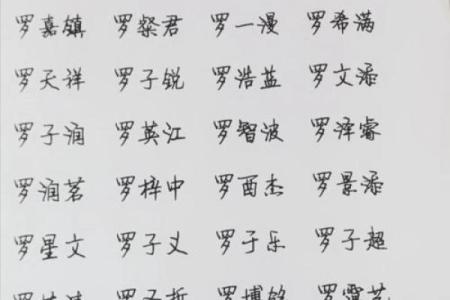 罗嘉镇 罗粲君 罗一漫 罗希满
罗天祥 罗子锐 罗浩蓝 罗文添
罗子润 罗英江 罗智波 罗泽睿
罗润茗 罗梓中 罗酉杰 罗景添
罗星文 罗子义 罗于乐 罗子超
罗 罗子哲 罗博 罗霄艺